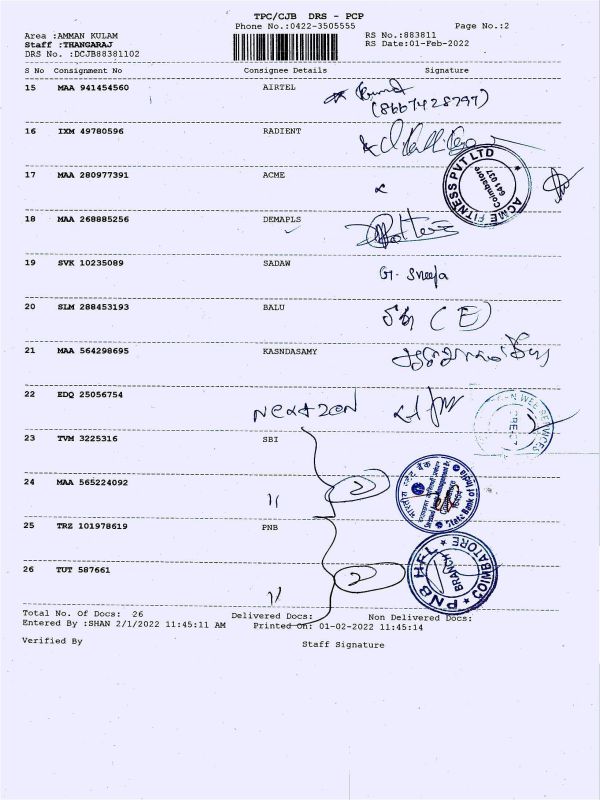 TPC/CJB DRS - PCP
Phone No.:0422-3505555
Page No.:2
Area :AMMAN KULAM
RS No.:883811
Staff :THANGARAJ
RS Date:01-Feb-2022
DRS No. :DCJB88381102
S No Consignment No Consignee Details Signature
15 MAA 941454560 AIRTEL
(8667428797)
16 IXM 49780596 RADIENT
17 MAA 280977391 ACME
ACME FITNESS PVT LTD
Coimbatore
641 037
18 MAA 268885256 DEMAPLS
19 SVK 10235089 SADAW
G. Sneeja
20 SLM 288453193 BALU
(E)
21 MAA 564298695 KASNDASAMY
22 EDQ 25056754
23 TVM 3225316 SBI
24 MAA 565224092 "
2
State Bank of India
25 TRZ 101978619 PNB
26 TUT 587661 "
2
PNB HFL
BRANCH
COIMBATORE
Total No. Of Docs: 26 Delivered Docs: Non Delivered Docs:
Entered By :SHAN 2/1/2022 11:45:11 AM Printed On: 01-02-2022 11:45:14
Verified By
Staff Signature